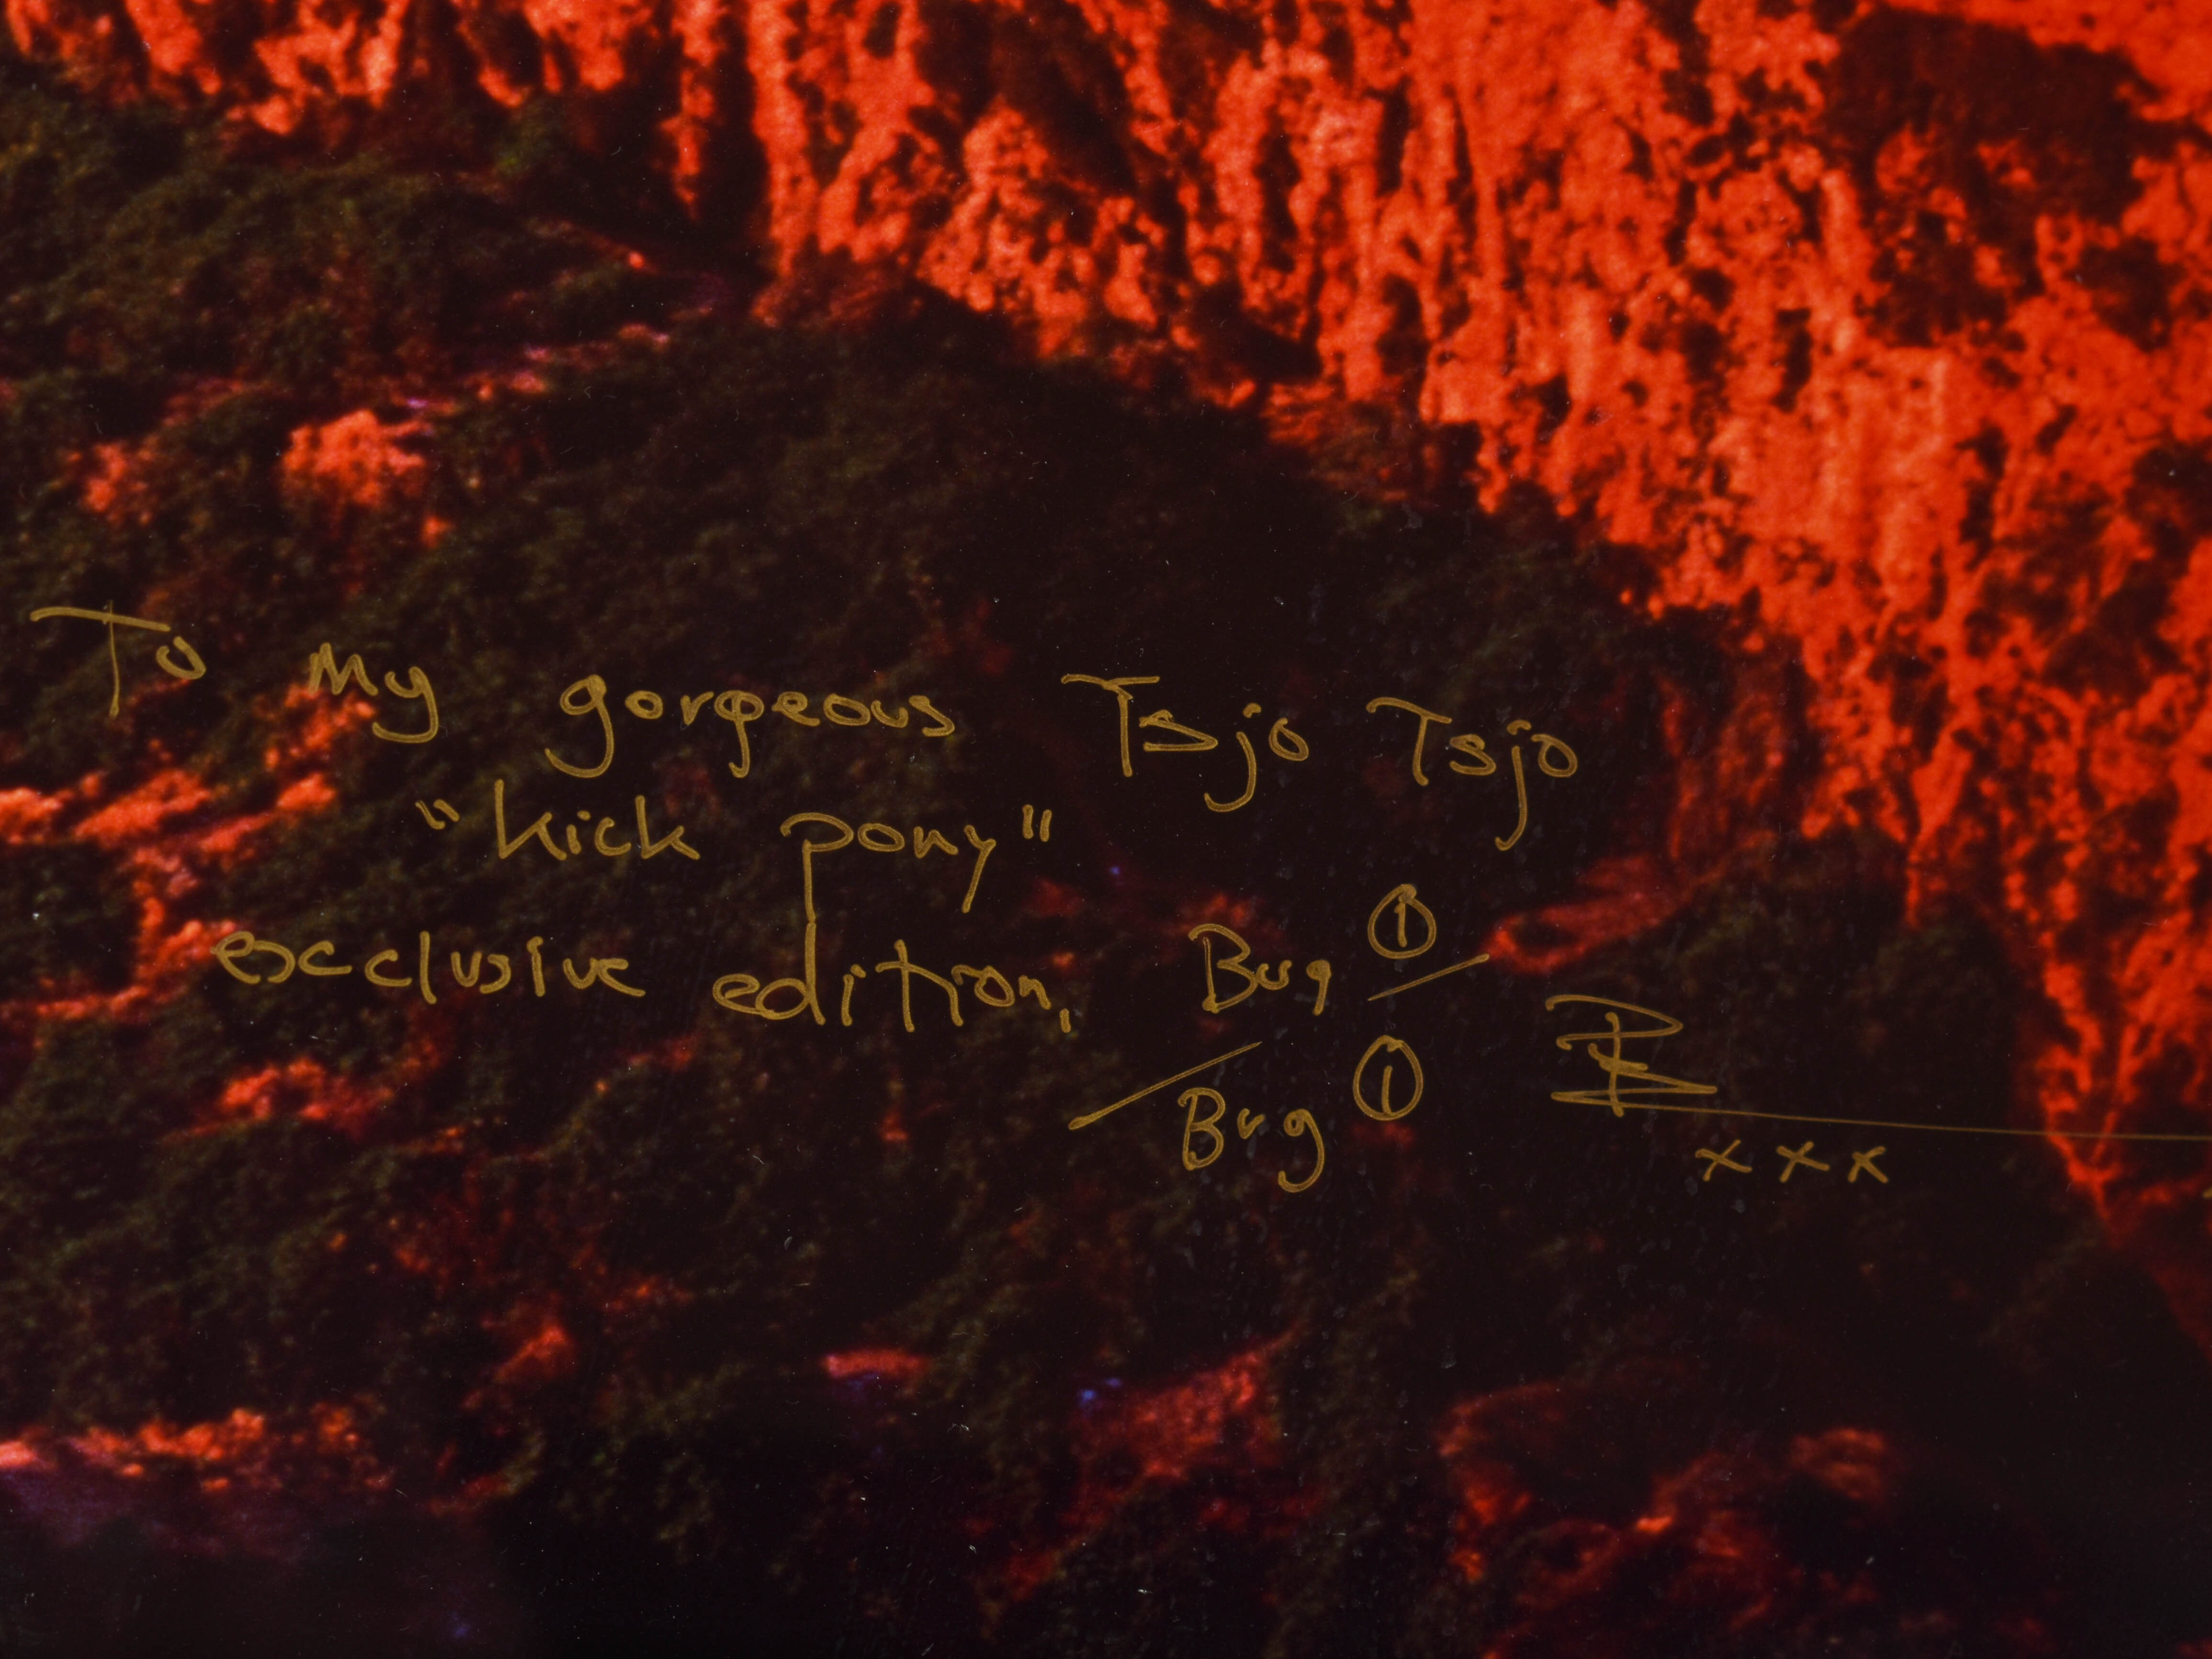 To My gorgeous Tsjo Tsjo
"kick pony"
exclusive edition, Bug ①
/ Bug ①
xxx